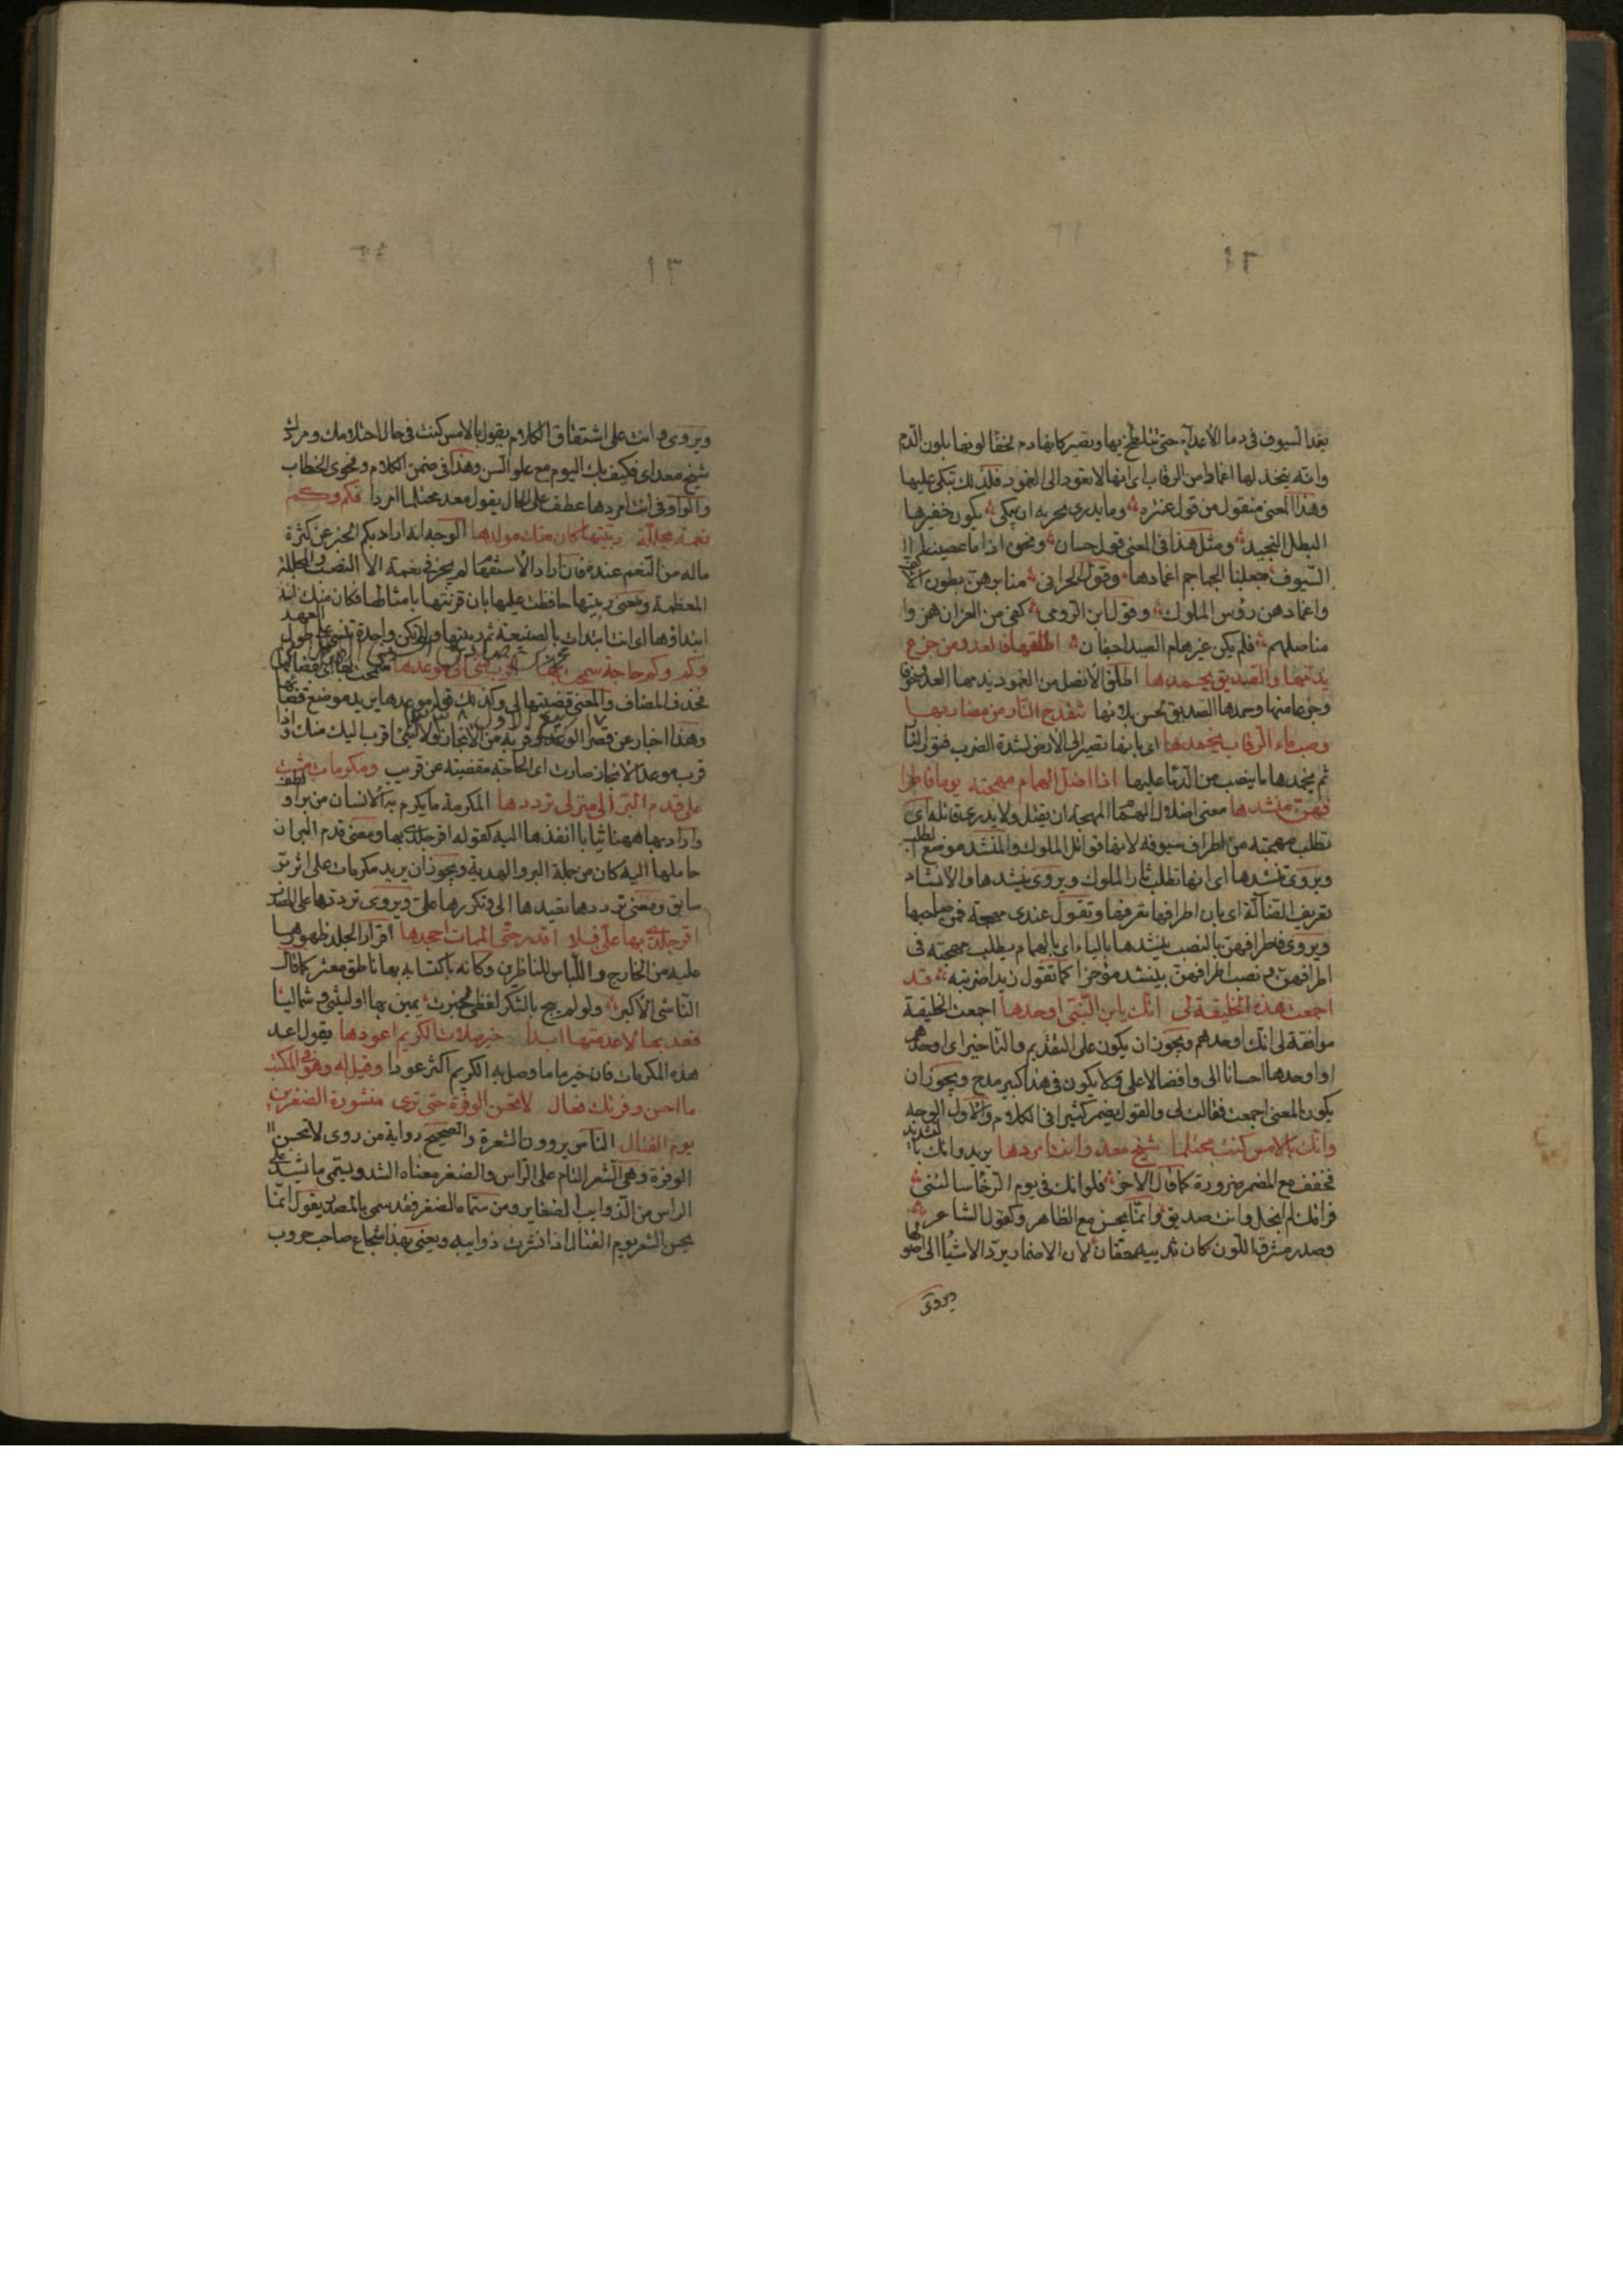 ١٢
يغد السيوف في دما الأعداء حتى تتلطخ بها وتصير كانها دم لخفا لونها بلون الدم
وانه يتخذ لها اغمادا من الرقاب اي انها لا تعود الى الغمود فلذلك تبكي عليها
وهذا المعنى منقول من قول عنتره وما يدري جريه ان يكى يكون جفيرها
البطل النجيد ومثل هذا في المعنى قول حسان ونحن اذا ما عصينا
السيوف جعلنا الجماجم اغمادها وقول الحراني منابرهن بطون الاكف
واغمادهن رؤس الملوك وقول ابن الرومي كفى من العز ان هزوا
مناصلهم فلم يكن غيرهام الصيد اجفان اطلقها فالعدو من جزع
يذمها والصديق يحمدها اطلق الانصل من الغمود يذمها العدو خوفا
وجزعا منها وحمدها الصديق لحسن بلائها تنقدح النار من مضاربها
وصب ماء الرقاب يخمدها اي بانها تصير الى الارض لشدة الضرب فتوري النار
ثم يخمدها ما ينصب من الدما عليها اذا اضل الهمام مهجته يوما فاطرا
فهن منشدها معنى اضلال الهمام المهجة ان يقتل ولا يدري قاتله اي
تطلب مهجته من اطراف سيوفه لانها قواتل الملوك والمنشد موضع الطلب
ويروى تنشدها اي انها تطلب ثار الملوك ويروى ينشدها والانشاد
تعريف الضالة اي بان اطرافها تعرفها وتقول عندي مهجة فمن صاحبها
ويروى فاطرافهن بالنصب ينشدها بالياء اي بالهمام يطلب مهجته في
اطرافهن ونصب اطرافهن بينشد مؤخرا كما تقول زيدا ضربته قد
اجمعت هذه الخليقة لي انك يا ابن النبي اوحدها اجمعت الخليقة
موافقة لي انك اوحدهم ويجوز ان يكون على التقديم والتاخير اي اوحدهم
او اوحدها احسانا الي وافضالا علي ولا يكون في هذا كبير مدح ويجوز ان
يكون المعنى اجمعت فقالت لي والقول يضمر كثيرا في الكلام والاول الوجه
وانك بالامس كنت محتلما شيخ معد وانت امردها يريد وانك بالتشديد
فخفف مع المضمر ضرورة كما قال الاخر فلو انك في يوم الرخا سالتني
فراقك لم ابخل وانت صديق وانما يحسن مع الظاهر وكقول الشاعر
وصدر مشرق اللون كان ثدييه حقان لان الاضمار يرد الاشيا الى اصولها
ويروى
١٣
ويروى وانت على اشتقاق الكلام يقول بالامس كنت في حال احتلامك ومردك
شيخ معد اي فكيف بك اليوم مع علو السن وهذا في ضمن الكلام وفحوى الخطاب
والواو في انت امردها عطف على الحال يقول معد محتلما امردا فكم وكم
نعمة مجللة ربيتها كان منك مولدها الوجه انه اراد بكم الخبر عن كثرة
ماله من النعم عنده فان اراد الاستفهام لم يجز في نعمة الا النصب والمجللة
المعظمة ومعنى ربيتها حافظت عليها بان قرنتها بامثالها فكان منك
ابتداؤها اي انت ابتدات بالصنيعة ثم ربيتها ولم تكن واحدة تنسى على طول العهد
وكم وكم حاجة سمحت بها اقرب مني الي موعدها سمحت بها اي بقضائها
فحذف المضاف والمعنى قضيتها الي وكذلك قوله موعدها يريد موضع قضائها
وهذا اخبار عن قصر الوعد وقربه من الانجاز ولا شئ اقرب اليك منك واذا
قرب موعد الانجاز صارت اي الحاجة مقضية عن قريب ومكرمات مشت
على قدم البر الى منزلي ترددها المكرمة ما يكرم به الانسان من بر او لطف
واراد بها ههنا ثيابا انفذها اليه كقوله اقر جلدي بها ومعنى قدم البر ان
حاملها اليه كان من جملة البر والهدية ويجوز ان يريد مكرمات على اثر بر
سابق ومعنى ترددها تعيدها الي وتكررها علي ويروى ترددها على المصدر
اقر جلدي بها علي فلا اقدر حتى الممات اجحدها اقرار الجلد ظهورها
عليه من الخارج واللباس للناظرين وكانه باكتسابه بها ناطق معترف كما قال
الناشي الاكبر ولو لم يبح بالشكر لفظي لخبرت يميني بما اوليتني وشماليا
فعد بها لا عدمتها ابدا خير صلات الكريم اعودها يقول اعد
هذه المكرمات فان خير ما وصل به الكريم اكثر عودا وقيل له وهو في المكتب
ما احسن وفرتك فقال لا تحسن الوفرة حتى ترى منشورة الضفرين
يوم القتال الناس يروون الشعرة والصحيح رواية من روى لا تحسن
الوفرة وهي الشعر التام على الراس والضفر معناه الشد ويسمى ما شد على
الراس من الذوايب الضفاير ومن سماه الضفر فقد سمى بالمصدر يقول انما
يحسن الشعر يوم القتال اذا نشرت ذوايبه ويعنى بهذا شجاع صاحب حروب